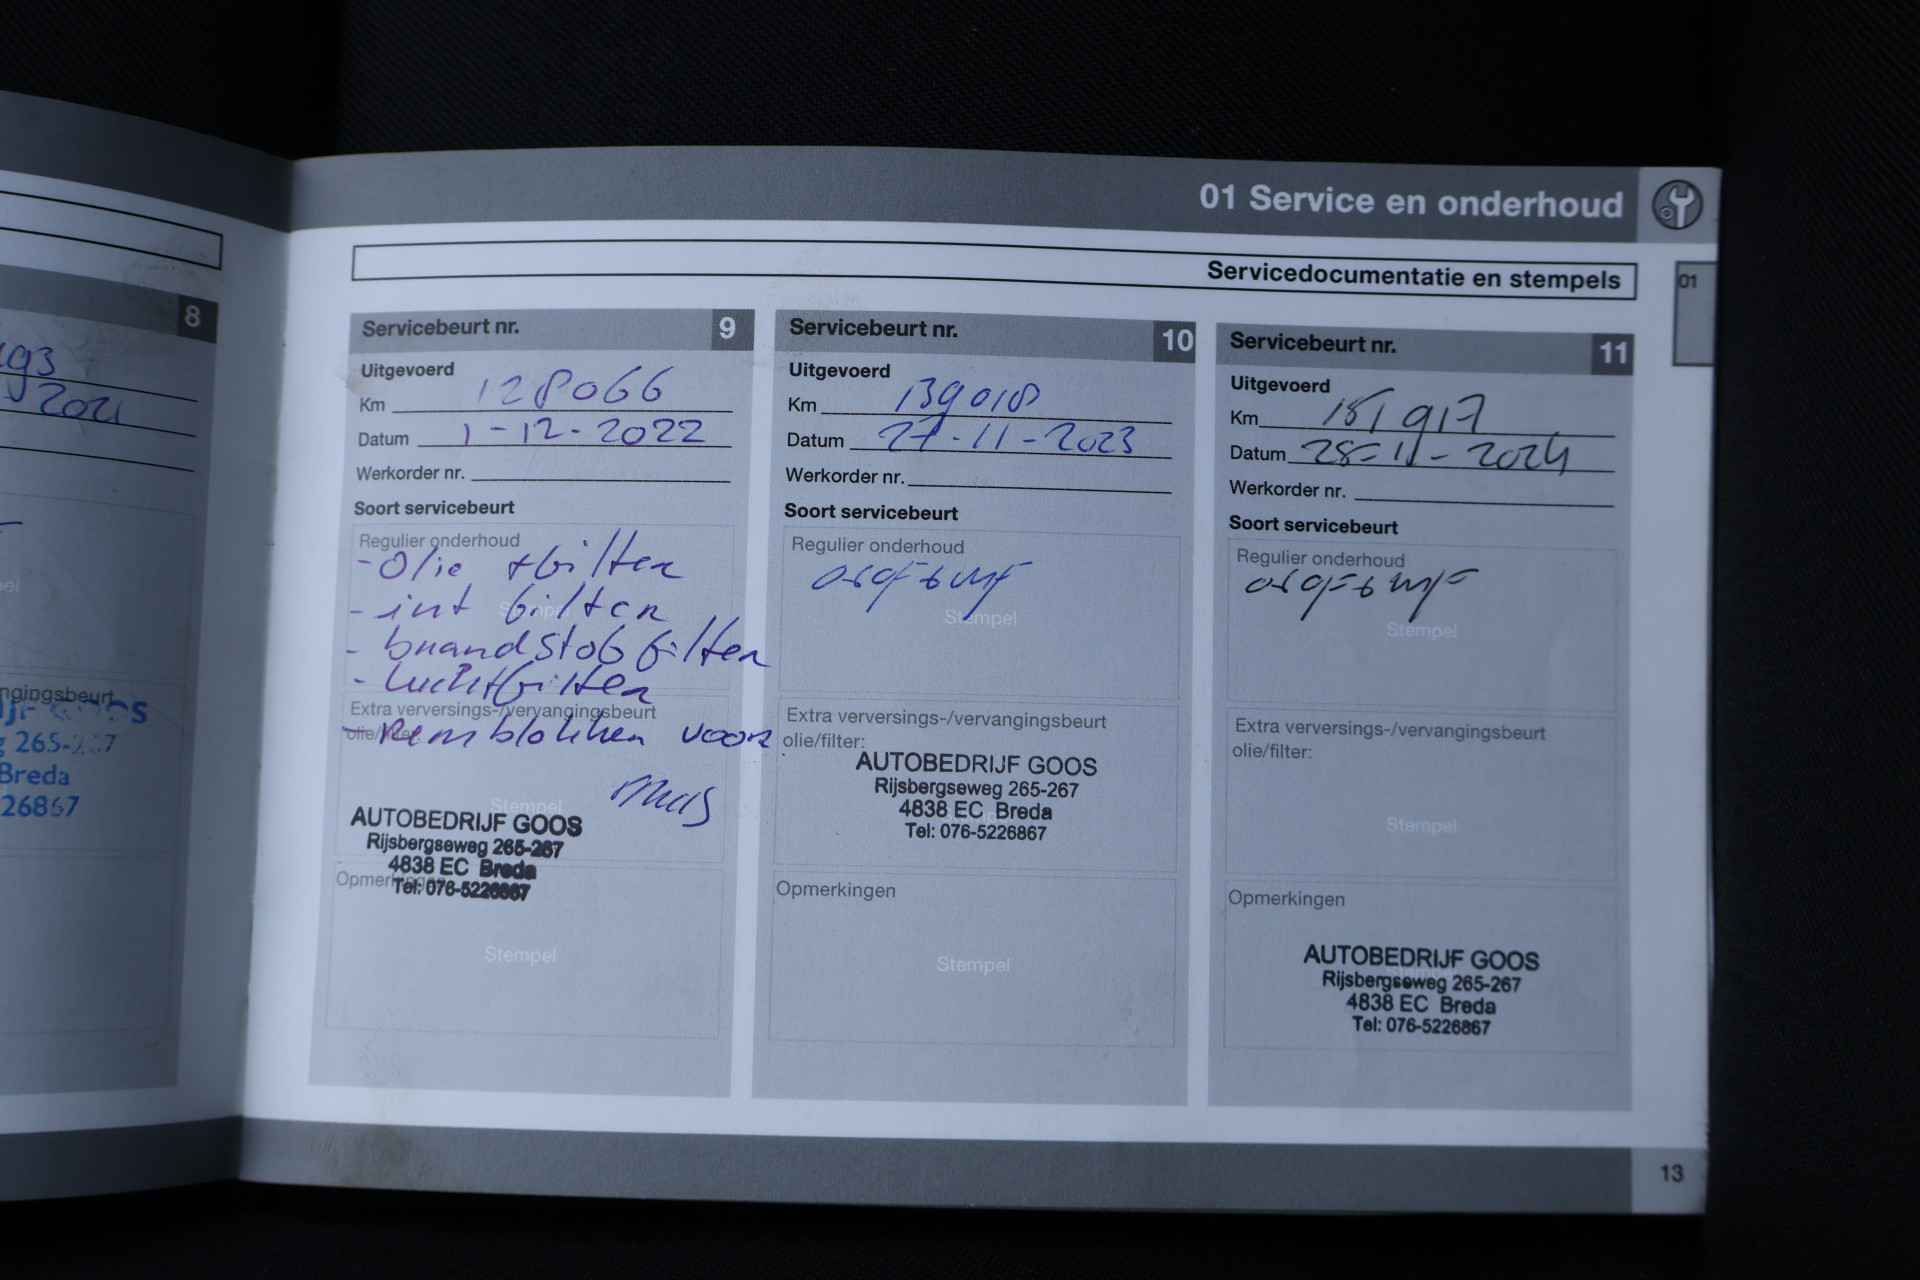 8
2021
ngingsbeurt
265-267
Breda
26867
01 Service en onderhoud
Servicedocumentatie en stempels
01
Servicebeurt nr. 9
Uitgevoerd
Km 128066
Datum 1-12-2022
Werkorder nr.
Soort servicebeurt
Regulier onderhoud
- Olie + filter
- int filter
Stempel
- brandstof filter
- luchtfilter
Extra verversings-/vervangingsbeurt
olie/filter:
- Remblokken voor
Stempel
AUTOBEDRIJF GOOS
Rijsbergseweg 265-267
4838 EC Breda
Opmerkingen
Tel: 076-5226867
Stempel
Servicebeurt nr. 10
Uitgevoerd
Km 139018
Datum 27-11-2023
Werkorder nr.
Soort servicebeurt
Regulier onderhoud
Stempel
Extra verversings-/vervangingsbeurt
olie/filter:
AUTOBEDRIJF GOOS
Rijsbergseweg 265-267
4838 EC Breda
Tel: 076-5226867
Opmerkingen
Stempel
Servicebeurt nr. 11
Uitgevoerd
Km 151917
Datum 28-11-2024
Werkorder nr.
Soort servicebeurt
Regulier onderhoud
Stempel
Extra verversings-/vervangingsbeurt
olie/filter:
Stempel
Opmerkingen
AUTOBEDRIJF GOOS
Stempel
Rijsbergseweg 265-267
4838 EC Breda
Tel: 076-5226867
13